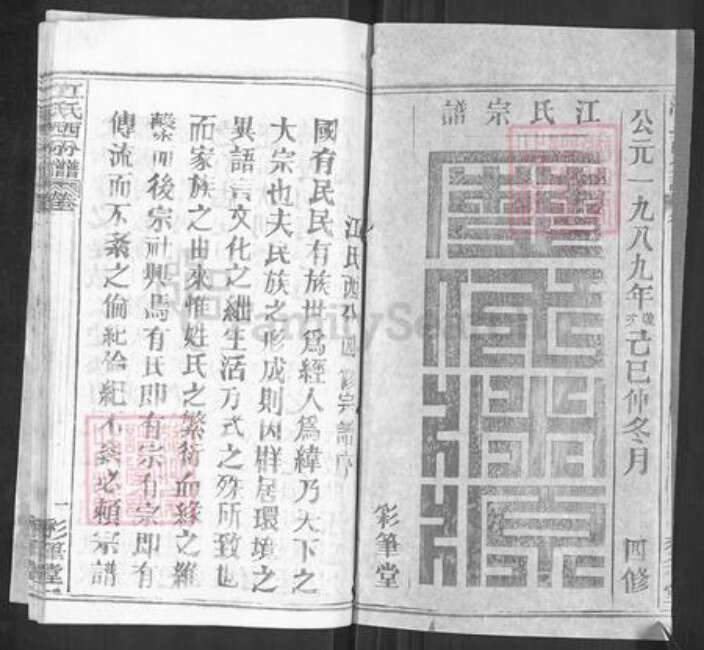 江氏宗譜
公元一九八九年歲次己巳仲冬月
四修
彩筆堂
江氏西分四修宗譜序
國有民民有族世為經人為緯乃天下之
大宗也夫民族之形成則因群居環境之
異語言文化之細生活方式之殊所致也
而家族之由來惟姓氏之繁衍血緣之維
繫而後宗社興焉有氏即有宗有宗即有
傳流而不紊之倫紀倫紀不紊必賴宗譜
江氏西分譜
一
彩筆堂
FamilySearch